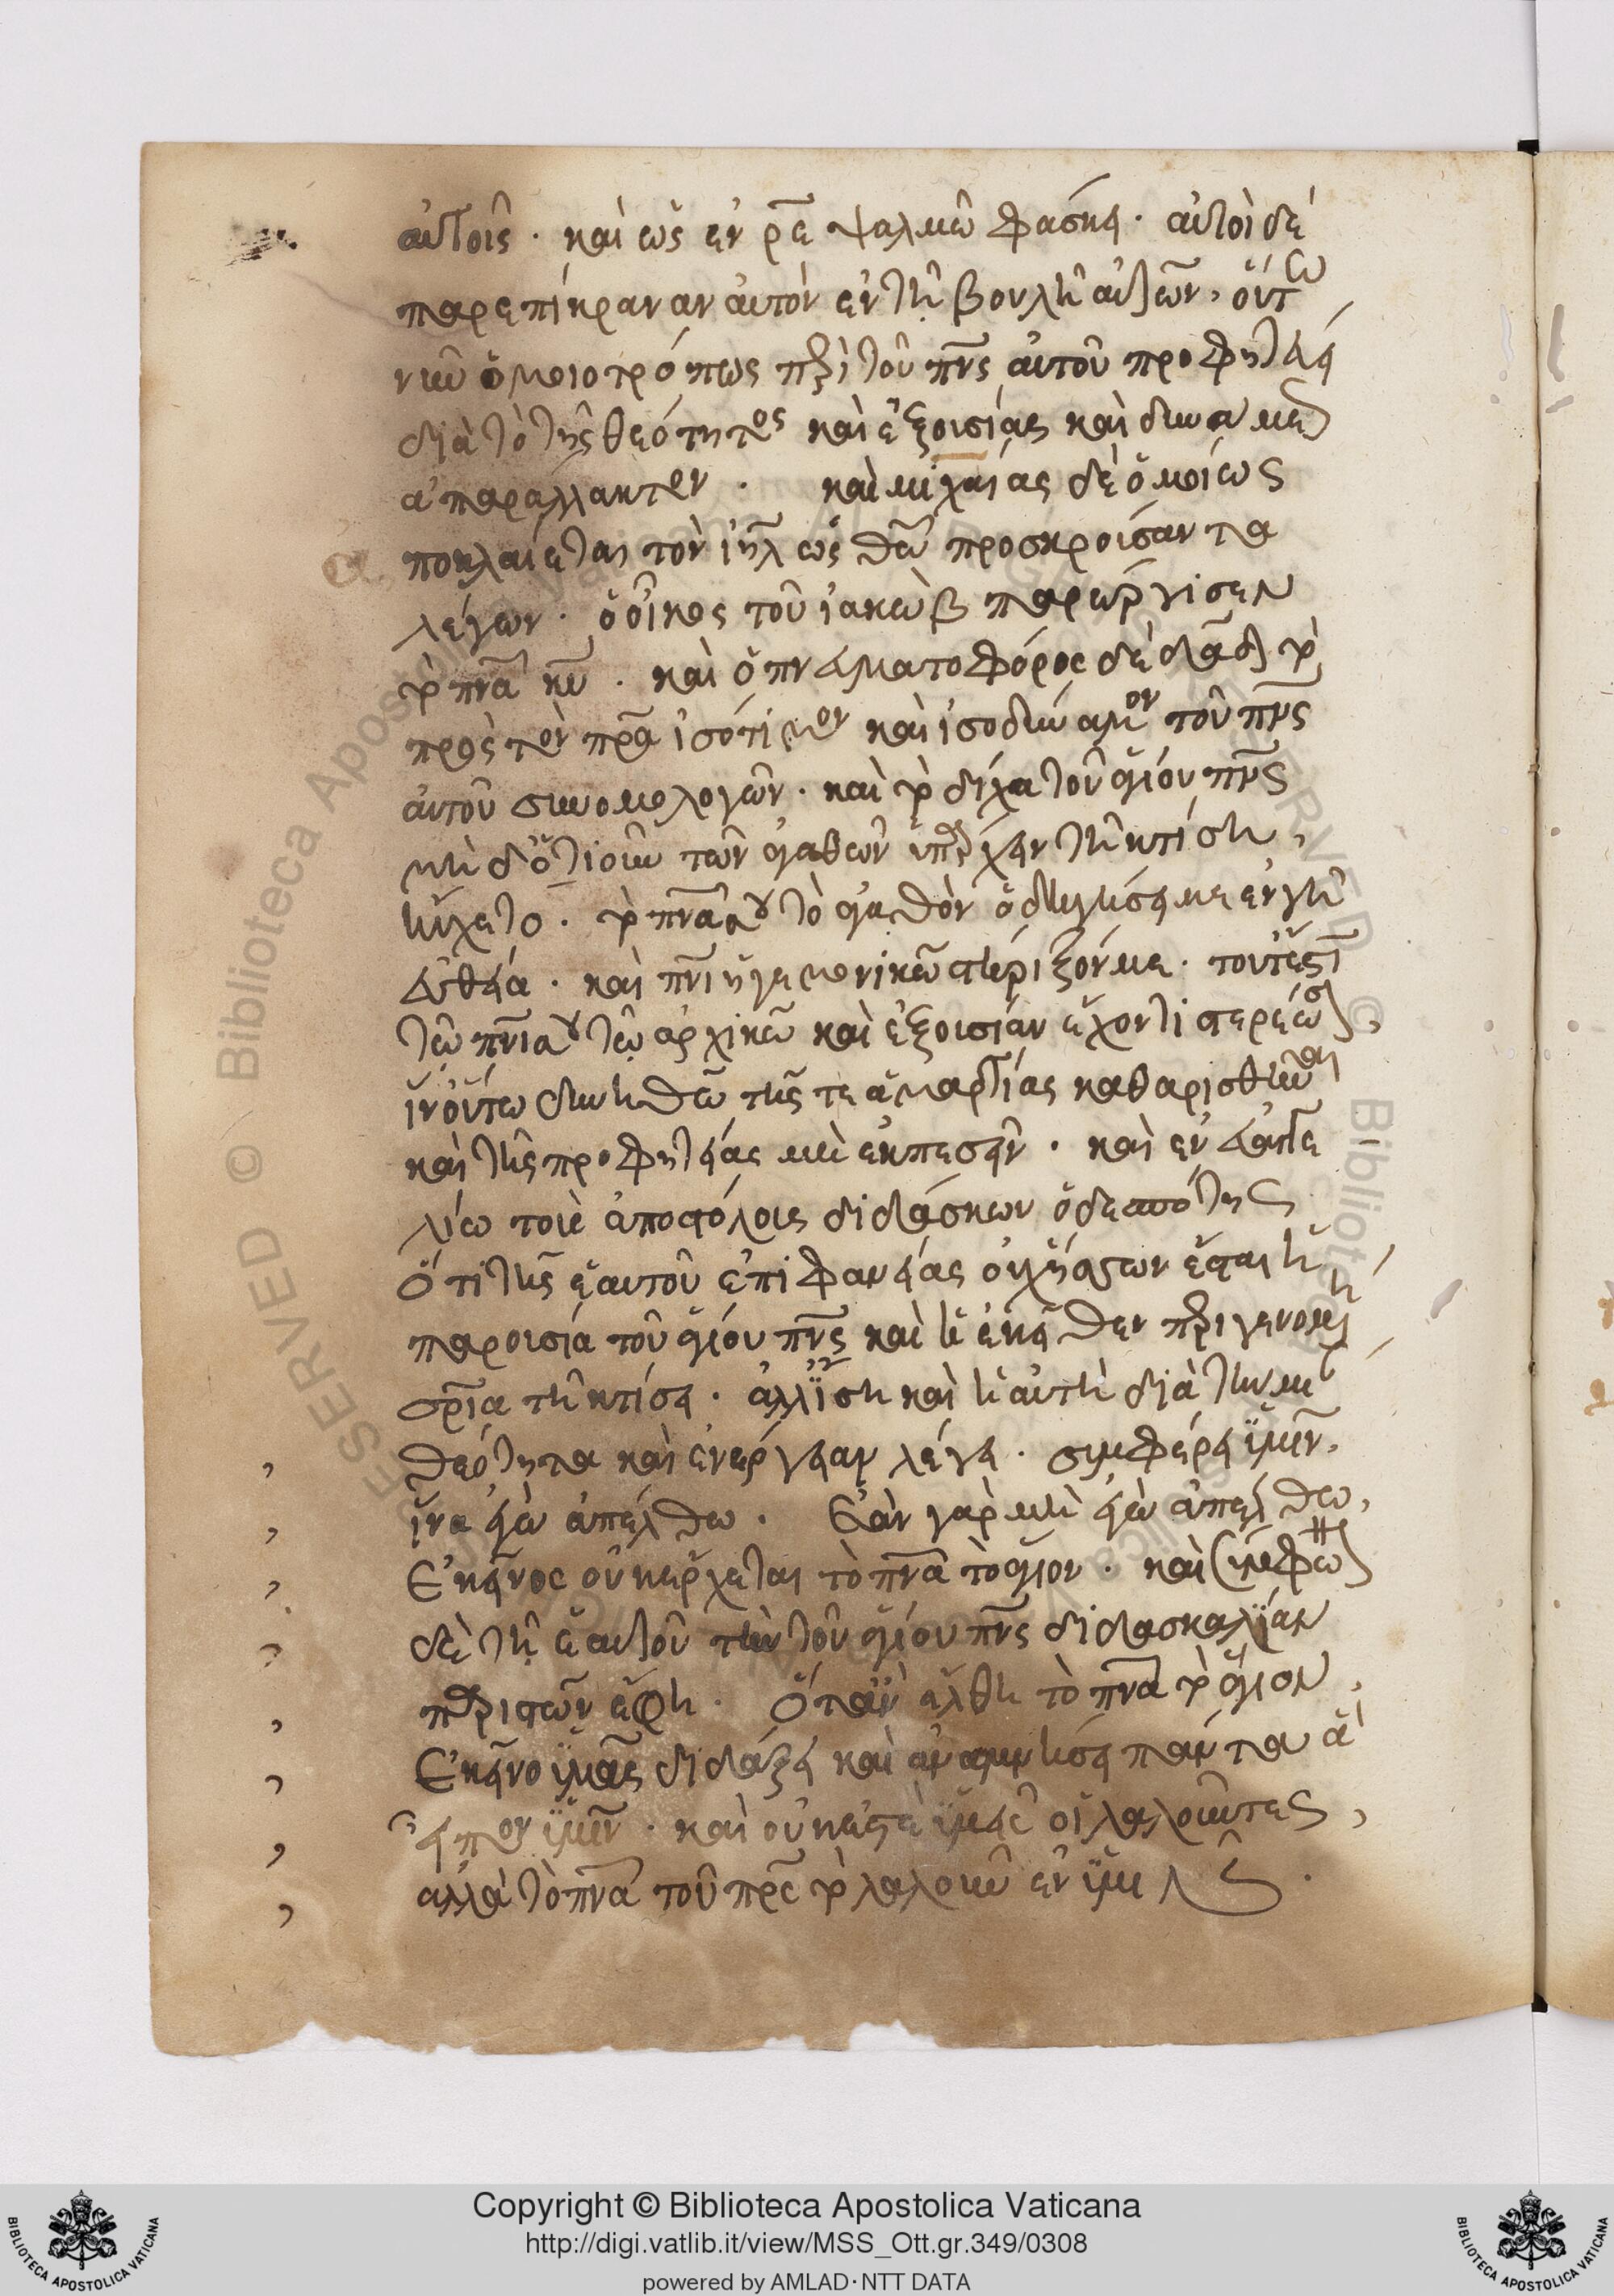 αὐτοῖς · καὶ ὡς ἐν ρε ψαλμῶ φάσκει · αὐτοὶ δὲ
παρεπίκραναν αὐτὸν ἐν τῆ βουλῆ αὐτῶν, οὕτω
νῦν ὁμοιοτρόπως περὶ τοῦ πνς αὐτοῦ προφητεύει
διὰ τὸ τῆς θεότητος καὶ ἐξουσίας καὶ δυνάμεως
ἀπαράλλακτον · καὶ μιχαίας δὲ ὁμοίως
ποκλαίεται τὸν ιηλ ὡς θεῶ προσκρούσαντα
λέγων · ὁ οἶκος τοῦ ἰακὼβ παρώργισεν
τὸ πνα κυ · καὶ ὁ πνευματοφόρος δὲ δαδ τὸ
πρὸς τὸν πρα ἰσότιμον καὶ ἰσοδύναμον τοῦ πνς
αὐτοῦ συνομολογῶν · καὶ τὸ δίχα τοῦ ἁγίου πνς
μὴ δ ὁτιοῦν τῶν ἀγαθῶν ὑπάρχειν τῆ κτίσει,
ηὔχετο · τὸ πνα σου τὸ ἀγαθὸν ὁδηγήσει με ἐν γῆ
εὐθεία · καὶ πνι ἡγεμονικῶ στήριξόν με · τουτέστι
τῶ πνι σου τῶ ἀρχικῶ καὶ ἐξουσίαν ἔχοντι στερέωσον,
ἵν οὕτω δυνηθῶ τῆς τε ἁμαρτίας καθαρισθῆναι
καὶ τῆς προφητείας μὴ ἐκπεσεῖν · καὶ ἐν εὐαγγε
λίω τοῖς ἀποστόλοις διδάσκων ὁ δεσπότης
ὅτι τῆς ἑαυτοῦ ἐπιφανείας οὐχ ἧττων ἔσται ἡ
παρουσία τοῦ ἁγίου πνς καὶ ἡ ἐκεῖθεν περιγενομένη
σρια τῆ κτίσει · ἀλλ ἴση καὶ ἡ αὐτὴ διὰ τὴν μίαν
θεότητα καὶ ἐνέργειαν λέγει · συμφέρει ὑμῖν,
ἵνα ἐγὼ ἀπέλθω · Ἐὰν γὰρ μὴ ἐγὼ ἀπέλθω,
Ἐκεῖνος οὐκ ἔρχεται τὸ πνα τὸ ἅγιον · καὶ
δὲ τῆ ἑαυτοῦ τὴν τοῦ ἁγίου πνς διδασκαλίαν
παριστῶν ἔφη · Ὅταν ἔλθη τὸ πνα τὸ ἅγιον,
Ἐκεῖνο ὑμᾶς διδάξει καὶ ἀναμνήσει πάντα ἃ
εἶπον ὑμῖν · καὶ οὐκ ἐστὲ ὑμεῖς οἱ λαλοῦντες,
ἀλλὰ τὸ πνα τοῦ πρς τὸ λαλοῦν ἐν ὑμῖν ·
Copyright © Biblioteca Apostolica Vaticana
http://digi.vatlib.it/view/MSS_Ott.gr.349/0308
powered by AMLAD·NTT DATA
BIBLIOTECA APOSTOLICA VATICANA
BIBLIOTECA APOSTOLICA VATICANA